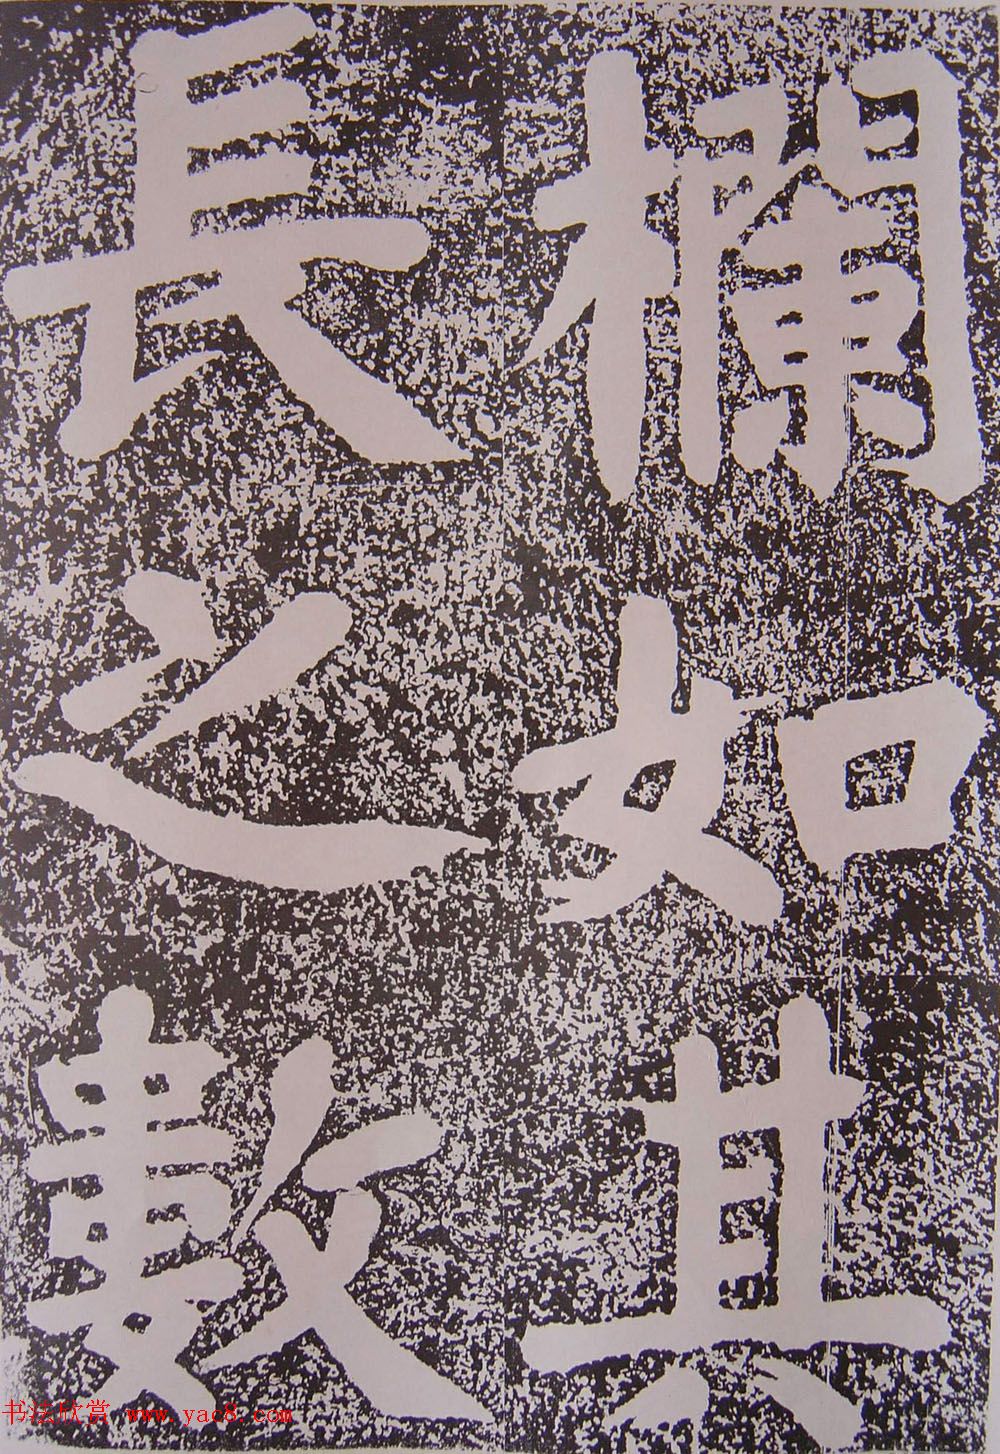 欄如其
長之數
书法欣赏 www.yac8.com